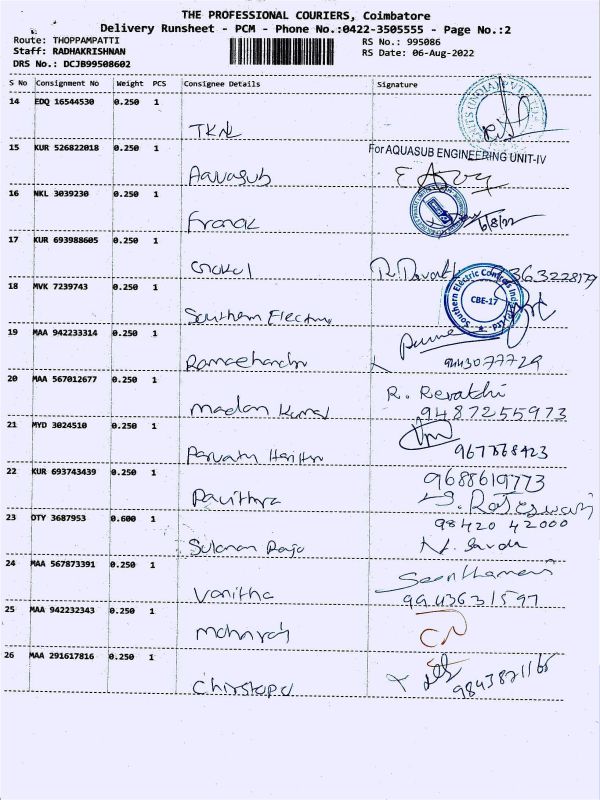 THE PROFESSIONAL COURIERS, Coimbatore
Delivery Runsheet - PCM - Phone No.:0422-3505555 - Page No.:2
Route: THOPPAMPATTI RS No.: 995086
Staff: RADHAKRISHNAN RS Date: 06-Aug-2022
DRS No.: DCJB99508602
S No Consignment No Weight PCS Consignee Details Signature
14 EDQ 16544530 0.250 1
TKNL
15 KUR 526822018 0.250 1 For AQUASUB ENGINEERING UNIT-IV
Aquasub
16 NKL 3039230 0.250 1
Franak 6/8/22
17 KUR 693988605 0.250 1
Gokul
18 MVK 7239743 0.250 1 Southern Electric Controls CBE-17
Southern Electric
19 MAA 942233314 0.250 1
Ramachandra 9443077729
20 MAA 567012677 0.250 1 R. Revathi
Madan Kumar 9487255973
21 MYD 3024510 0.250 1
Parvathi Harithra
22 KUR 693743439 0.250 1 9688619773
Pavithra S. Rajeswari
23 OTY 3687953 0.600 1 98420 42000
Sulaman Raja
24 MAA 567873391 0.250 1
Vanitha 9943631597
25 MAA 942232343 0.250 1
26 MAA 291617816 0.250 1
9843871166